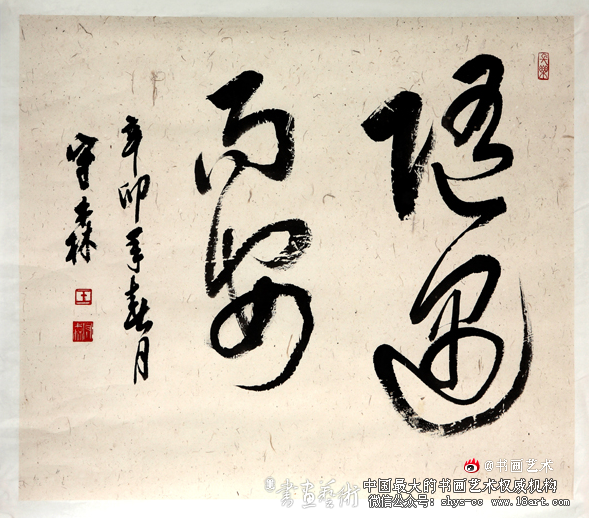 随遇
而安
辛卯年春月
守森
王
@书画艺术
書画藝術
中国最大的书画艺术权威机构
微信公众号：shys-cc www.18art.com